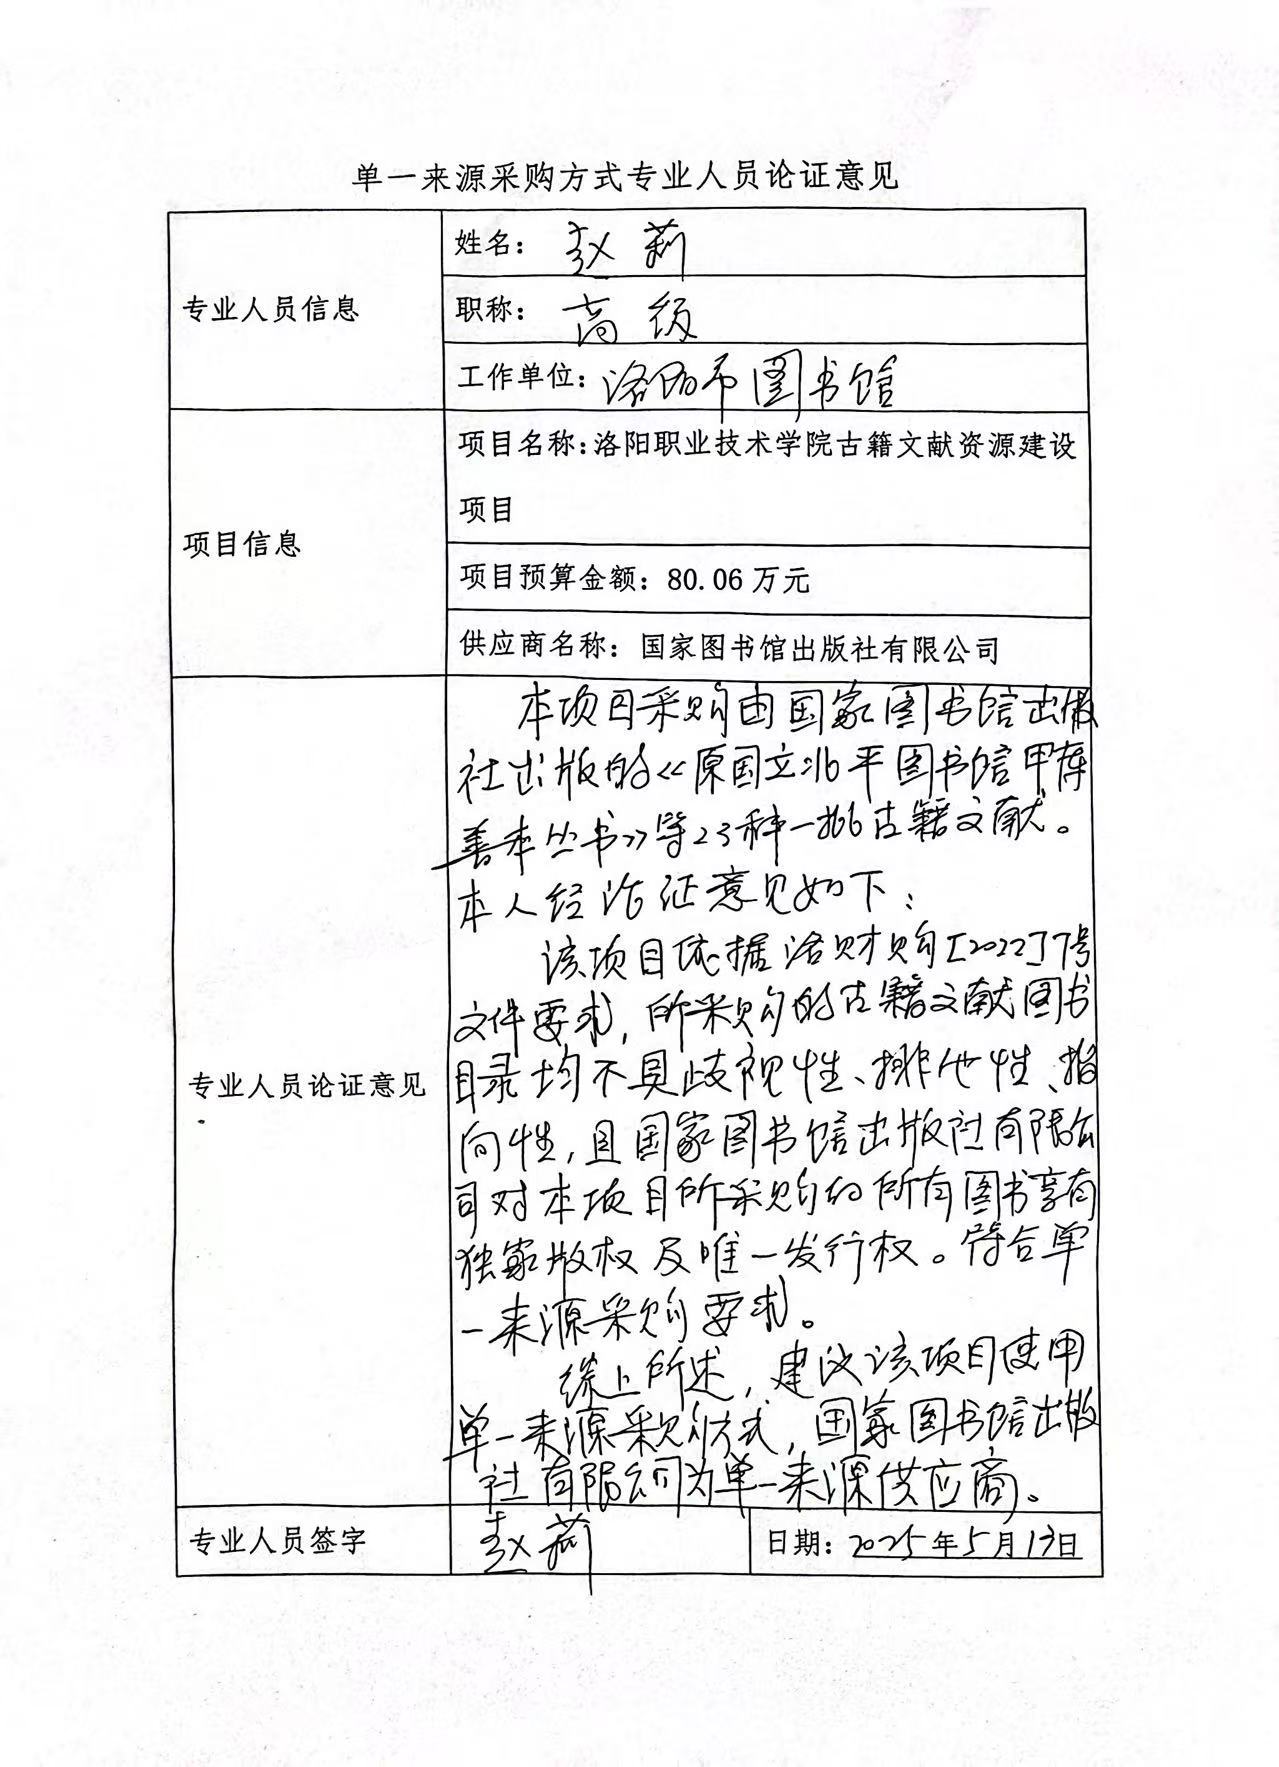 单一来源采购方式专业人员论证意见
专业人员信息
姓名：赵莉
职称：高级
工作单位：洛阳市图书馆
项目信息
项目名称：洛阳职业技术学院古籍文献资源建设
项目
项目预算金额：80.06万元
供应商名称：国家图书馆出版社有限公司
专业人员论证意见
本项目采购由国家图书馆出版
社出版的《原国立北平图书馆甲库
善本丛书》等23种一批古籍文献。
本人经论证意见如下：
该项目依据洛财购[2022]7号
文件要求，所采购的古籍文献图书
目录均不具歧视性、排他性、指
向性，且国家图书馆出版社有限公
司对本项目所采购的所有图书享有
独家版权及唯一发行权。符合单
一来源采购要求。
综上所述，建议该项目使用
单一来源采购方式，国家图书馆出版
社有限公司为单一来源供应商。
专业人员签字
赵莉
日期：2025年5月13日